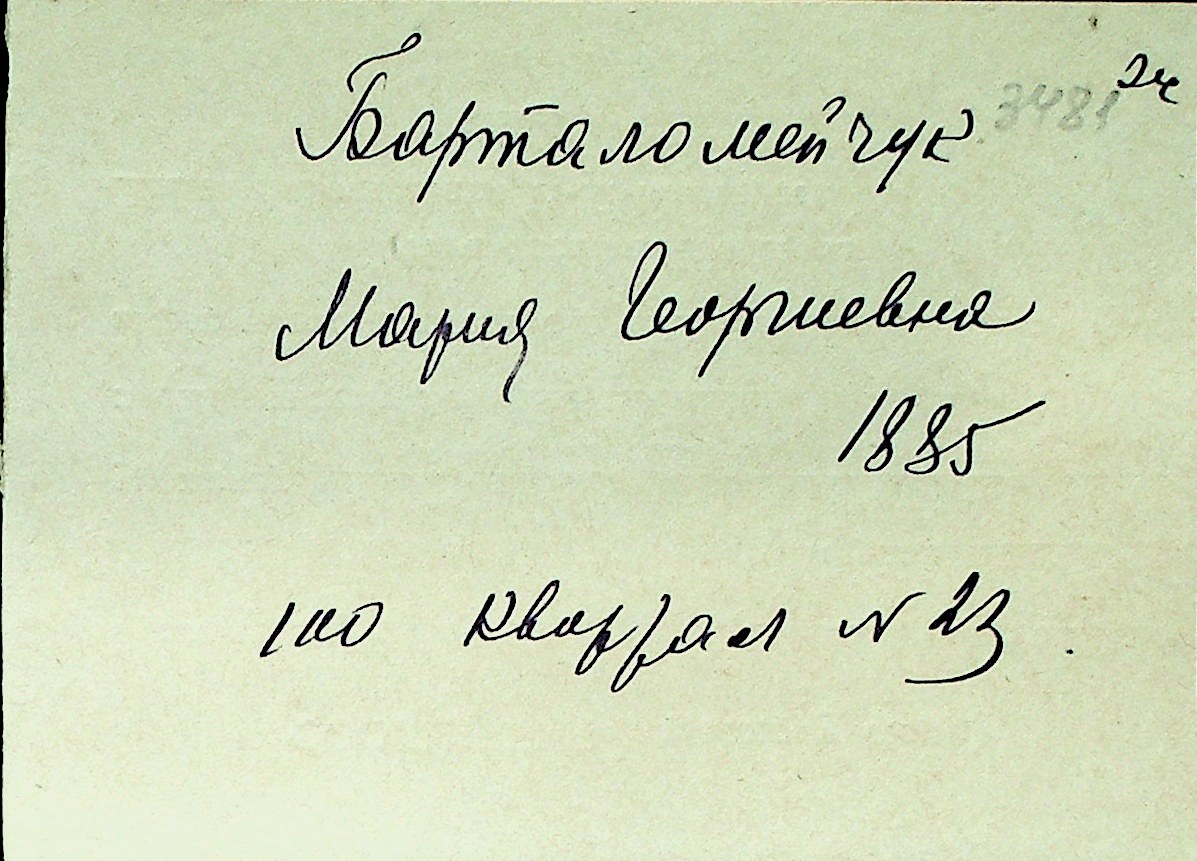 Барталомейчук 3481
Мария Георгиевна
1885
100 квартал N 23.